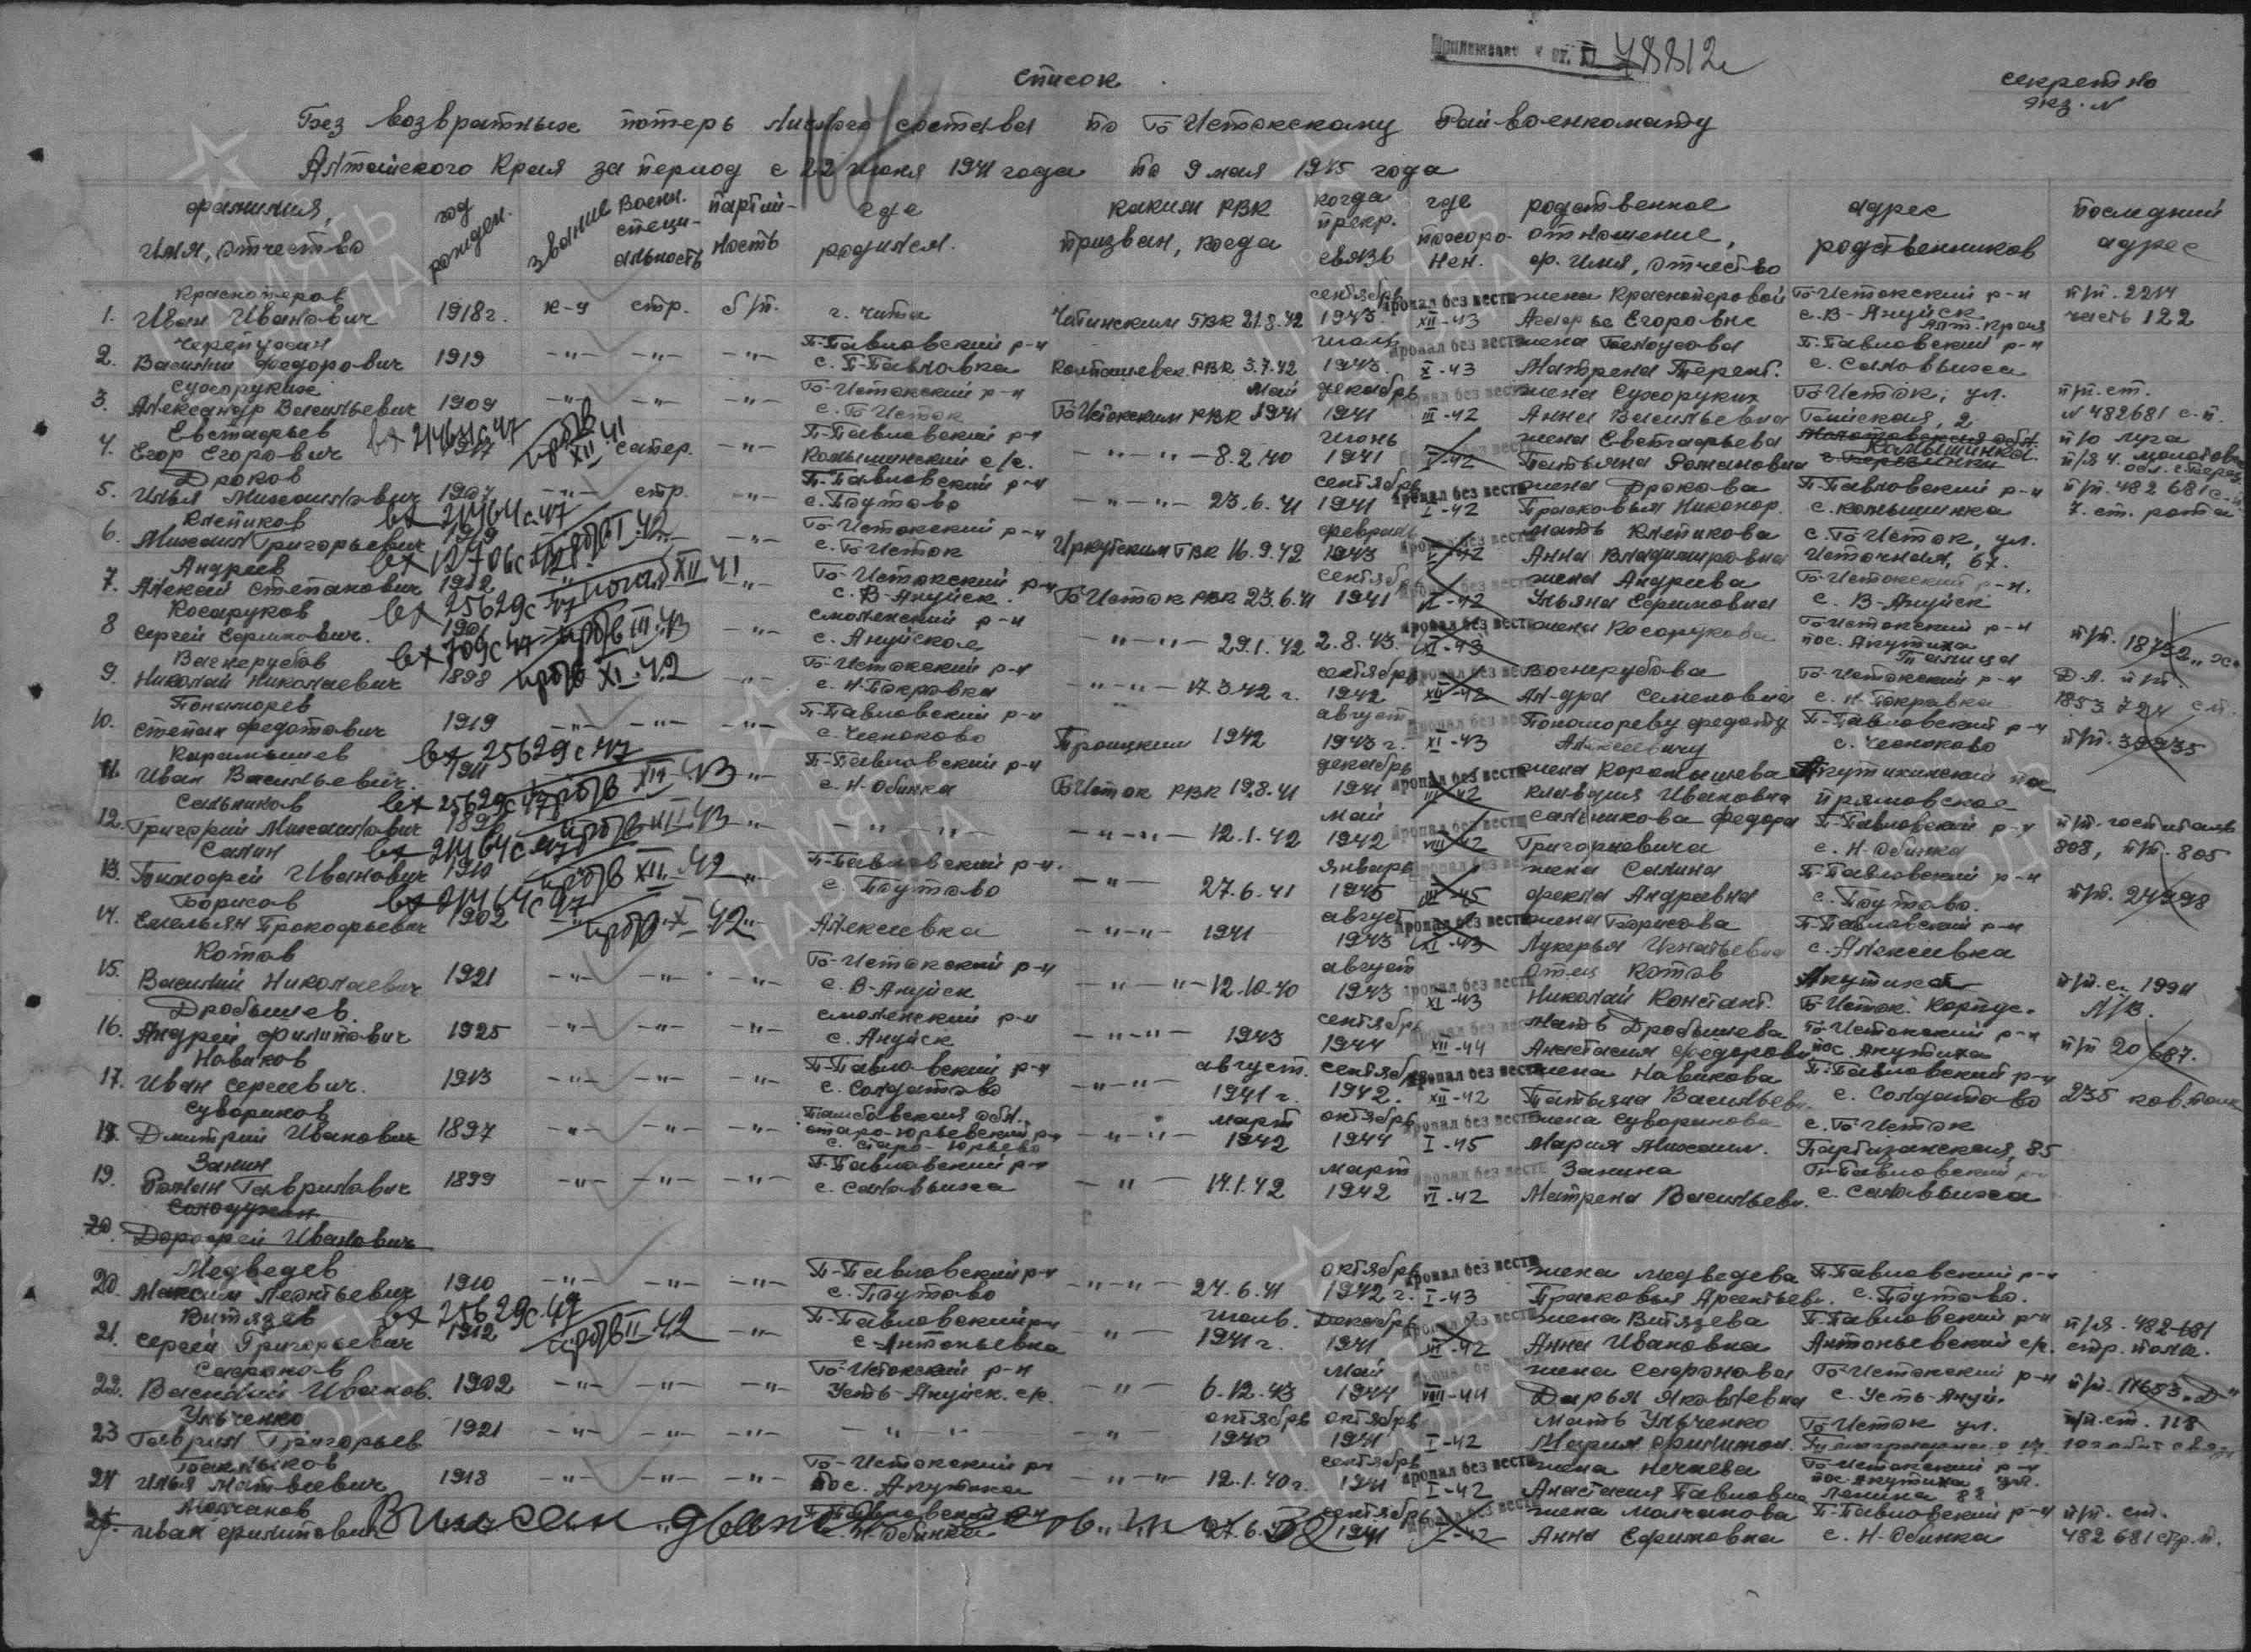 78812с
список
секретно
экз. N
Без возвратных потерь личного состава по Б Истокскому Рай военкомату
Алтайского Края за период с 22 июня 1941 года по 9 мая 1945 года
фамилия, имя, отчество год рожден. звание военн. специальность партийность где родился. каким РВК призван, когда когда прекр. связь где похоронен. родственное отношение, ф. имя, отчество адрес родственников последний адрес
1. Красноперов Иван Иванович 1918г. к-ц стр. б/п. г. Чита Читинским ГВК 21.8.42 сентябрь 1943 пропал без вести XII-43 жена Красноперовой Егоровне Б-Истокский р-н с. В-Ануйск Алт. края п/п. 2214 часть 122
2. Василий Федорович 1919 -"- -"- -"- П-Павловский р-н с. П-Павловка РВК 3.7.42 1943 пропал без вести X-43 жена Белоусова Матрена Терент. П-Павловский р-н с. Соловьиха
3. Сухоруких Александр Васильевич 1909 -"- -"- -"- Б-Истокский р-н с. Б-Исток Б-Истокским РВК май 1941 декабрь 1941 пропал без вести III-42 жена Сухоруких Анна Васильевна Б-Исток, ул. 2 п/п. ст. N 482681 с.п.
4. Евстафьев Егор Егорович вх 21463с 47 1917 XII 41 сапер. -"- П-Павловский р-н Камышинский с/с. -"- -"- 8.2.40 июнь 1941 V-42 жена Евстафьева Татьяна Романовна Камышинка. п/о Луга п/я 4.
5. Дроков Илья Михайлович 1907 -"- стр. -"- П-Павловский р-н с. Паутово -"- -"- 23.6.41 сентябрь 1941 пропал без вести I-42 жена Дрокова Прасковья Никонор. П-Павловский р-н с. Камышинка п/п. 482 681 с-п 7. ст. рота
6. Клепиков Михаил Григорьевич вх 21464с 47 1919 -"- Б-Истокский р-н с. Б-Исток Иркутским ГВК 16.9.42 февраль 1943 пропал без вести мать Клепикова Анна Владимировна с. Б-Исток, ул. Источная, 67.
7. Андреев Алексей Степанович вх 12706с 1912 погиб XII 41 -"- Б-Истокский р-н с. В-Ануйск Б Исток РВК 23.6.41 сентябрь 1941 жена Андреева Ульяна Ефимовна Б-Истокский р-н. с. В-Ануйск
8 Косоруков Сергей Ефимович. вх 25629с 47 1901 III-43 -"- Смоленский р-н с. Ануйское -"- -"- 29.1.42 2.8.43. пропал без вести XI-43 жена Косорукова Б-Истокский р-н пос. Акутиха п/п. 18752
9. Николай Николаевич вх 709с 47 1898 XI-42 -"- Б-Истокский р-н с. Н-Покровка -"- -"- 17.3.42 г. октябрь 1942 XII-42 Ал-дра Семеновна Б-Истокский р-н с. Н-Покровка Д.А. п/п. 1853 724 с.п.
10. Пономорев Степан Федотович 1919 -"- -"- -"- П-Павловский р-н с. Чесноково Троицким 1942 август 1943 г. пропал без вести XI-43 Пономореву Федоту Алексеевичу П-Павловский р-н с. Чесноково п/п. 39935
11. Карамышев Иван Васильевич. вх 25629с 47 1911 XII-43 -"- П-Павловский р-н с. Н-Обинка Б-Исток РВК 19.8.41 декабрь 1941 пропал без вести III-42 жена Карамышева Клавдия Ивановна
12. Сальников Григорий Михайлович вх 25629с 47 III 43 -"- -"- -"- -"- 12.1.42 май 1942 пропал без вести VIII-42 Сальникова Федора Григориевича П-Павловский р-н с. Н-Обинка п/п. госпиталь 808, п/п. 805
13. Салин Тимофей Иванович вх 21464с 47 1910 XII-42 -"- П-Павловский р-н. с. Паутово -"- 27.6.41 январь 1945 III-45 жена Салина Фекла Андревна П-Павловский р-н с. Паутово. п/п. 24998
14. Борисов Емельян Прокофьевич вх 21464с 47 1902 X-42 -"- Алексеевка -"- -"- 1941 август 1943 пропал без вести XI-43 жена Борисова Лукерья Игнатьевна П-Павловский р-н с. Алексеевка
15. Котов Василий Николаевич 1921 -"- -"- -"- Б-Истокский р-н с. В-Ануйск -"- -"- 12.10.40 август 1943 пропал без вести XI-43 отец Котов Николай Констант. Акутиха Б Исток. п/п. с. 1994 Л/В.
16. Дробышев. Андрей Филипович 1925 -"- -"- -"- Смоленский р-н с. Ануйск -"- -"- 1943 сентябрь 1944 XII-44 мать Дробышева Анастасия Федоровн. Б-Истокский р-н пос. Акутиха п/п 20 687.
17. Новиков Иван Сергеевич. 1913 -"- -"- -"- П-Павловский р-н с. Солдатово -"- -"- август. 1941 г. сентябрь 1942. пропал без вести XII-42 жена Новикова Татьяна Васильевн. П-Павловский р-н с. Солдатово 235 кав. полк
18. Суворинов Дмитрий Иванович 1897 -"- -"- -"- Тамбовская обл. Старо-Юрьевский р-н с. Старо-Юрьево -"- -"- март 1942 октябрь 1944 пропал без вести I-45 жена Суворинова Мария Михаил. с. Б-Исток Партизанская, 85
19. Занин Роман Гаврилович 1899 -"- -"- -"- П-Павловский р-н с. Соловьиха -"- 14.1.42 март 1942 пропал без вести VI-42 Занина Матрена Васильевн. П-Павловский с. Соловьиха
20. Дорофей Иванович
20. Медведев Максим Леонтьевич 1910 -"- -"- -"- П-Павловский р-н с. Паутово -"- -"- 24.6.41 октябрь 1942 г. пропал без вести I-43 жена Медведева Прасковья Арсентьевн. П-Павловский р-н с. Паутово.
21. Витязев Сергей Григорьевич вх 25629с. 47 1912 II-42 -"- П-Павловский р-н с. Антоньевка -"- июль. 1941 г. Декабрь 1941 III-42 жена Витязева Анна Ивановна П-Павловский р-н Антоньевский с/с. п/я. 482-681 стр. полк.
22. Сафронов Василий Иванов. 1902 -"- -"- -"- Б-Истокский р-н Усть-Ануйск. с/с. -"- 6.12.43 май 1944 VIII-44 жена Сафронова Дарья Яковлевна Б-Истокский р-н с. Усть-Ануй. п/п. 11653 „Д"
23 Ульченко Гаврил Григорьев 1921 -"- -"- -"- -"- -"- октябрь 1940 октябрь 1941 I-42 мать Ульченко Мария Филипов. Б-Исток ул. п/п. ст. 118
24 Илья Матвеевич 1918 -"- -"- -"- Б-Истокский р-н пос. Акутиха -"- -"- 12.1.40 г. сентябрь 1941 пропал без вести I-42 жена Нечаева Анастасия Павловна Б-Истокский р-н пос. Акутиха ул. Ленина 82
25. Молчанов Иван Филипович П-Павловский р-н Н-Обинка 27.6. сентябрь 1941 I-42 жена Молчанова Анна Ефимовна П-Павловский р-н с. Н-Обинка п/п. ст. 482 681 стр. п.